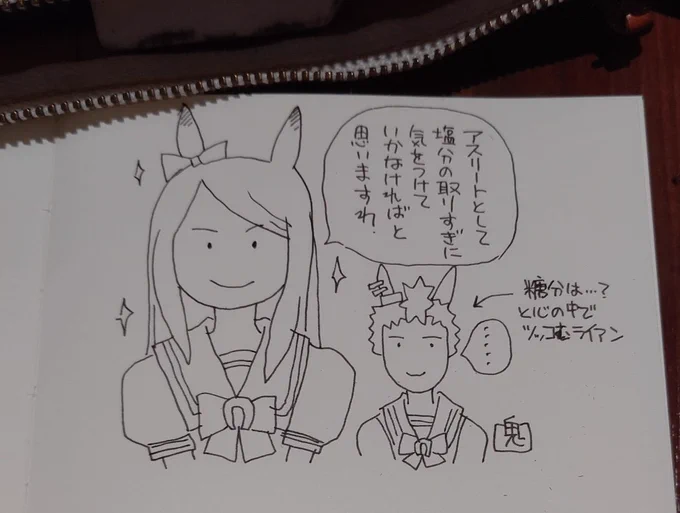 アスリートとして
塩分の取りすぎに
気をつけて
いかなければと
思いますわ!
糖分は…?
と心の中で
ツッコむライアン
……
鬼